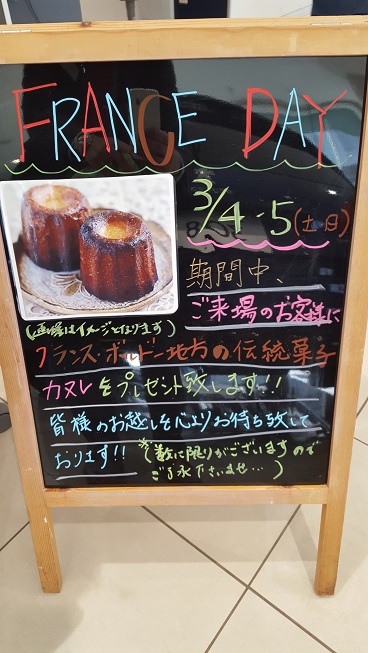 FRANCE DAY
3/4・5(土・日)
期間中、
ご来場のお客様に
(画像はイメージとなります)
フランス・ボルドー地方の伝統菓子
カヌレをプレゼント致します!!
皆様のお越しを心よりお待ち致して
おります!!
※(数に限りがございますので
ご了承下さいませ…)